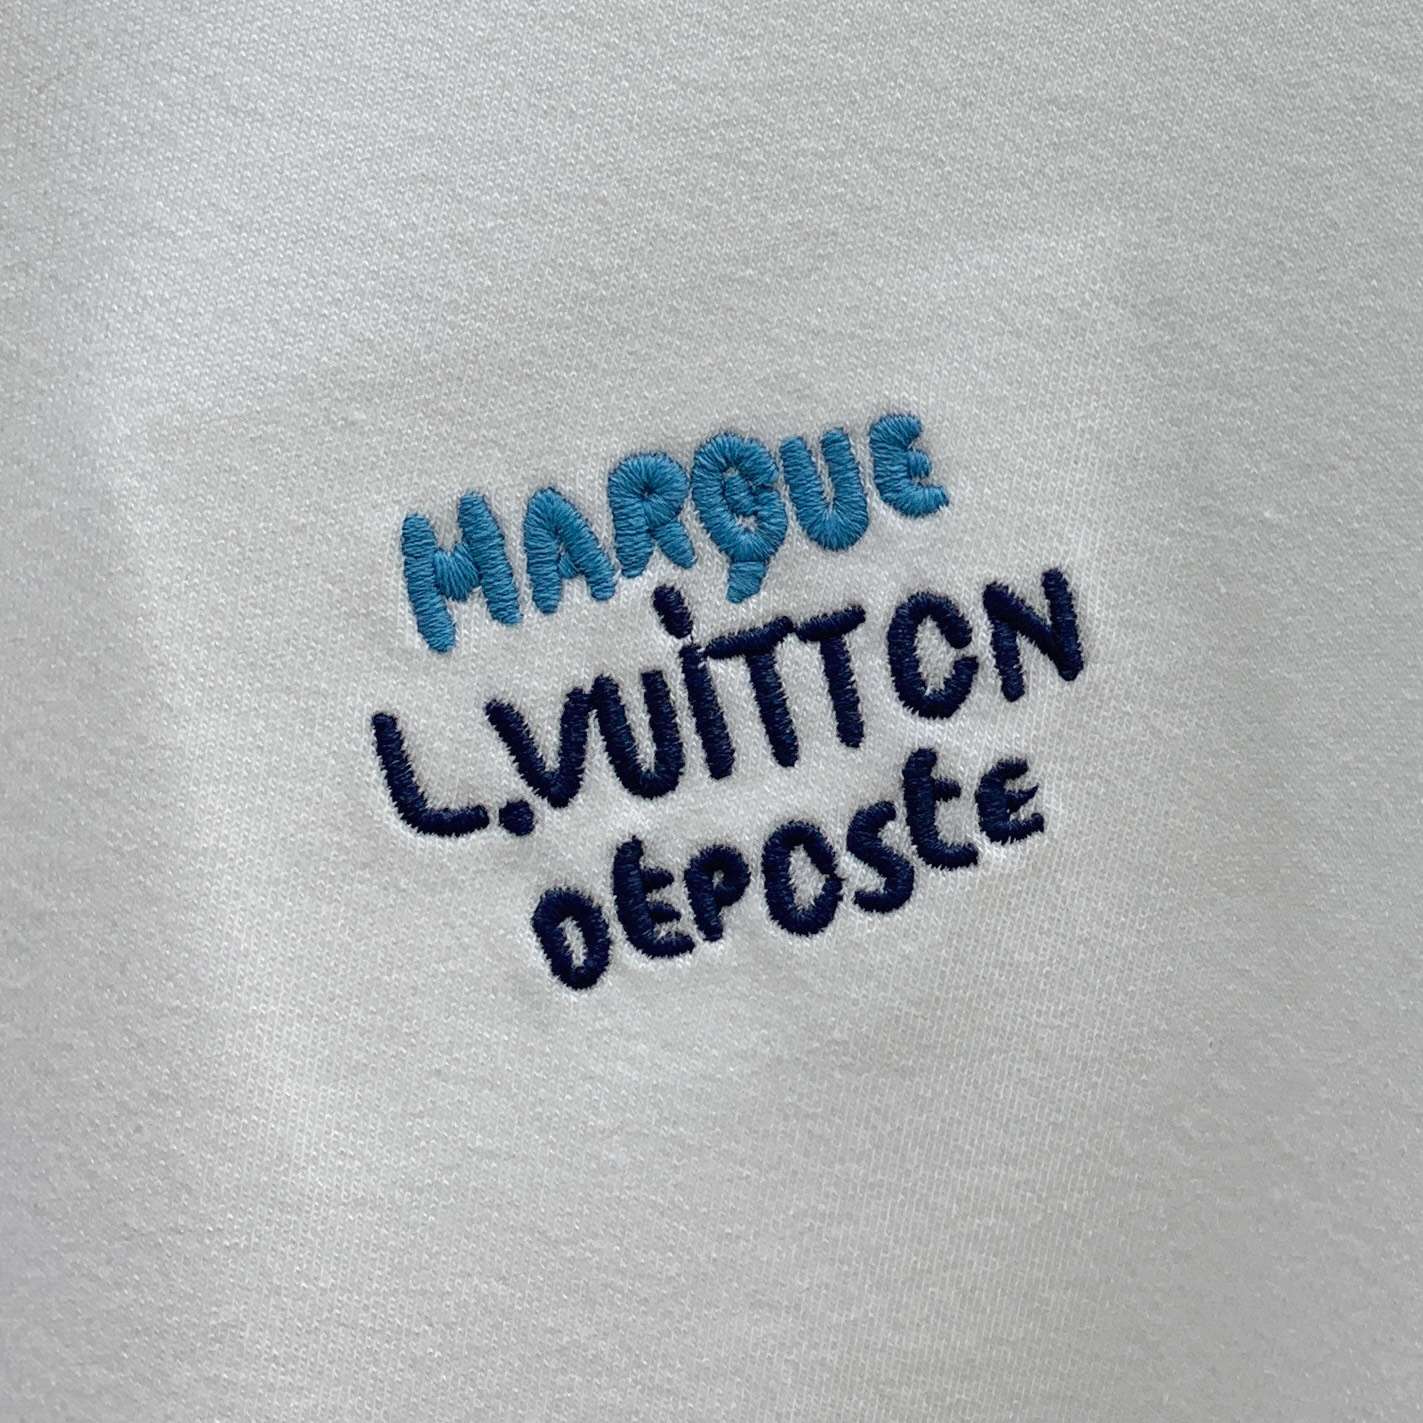 MARQUE
L.VUiTTON
DÉPOStE